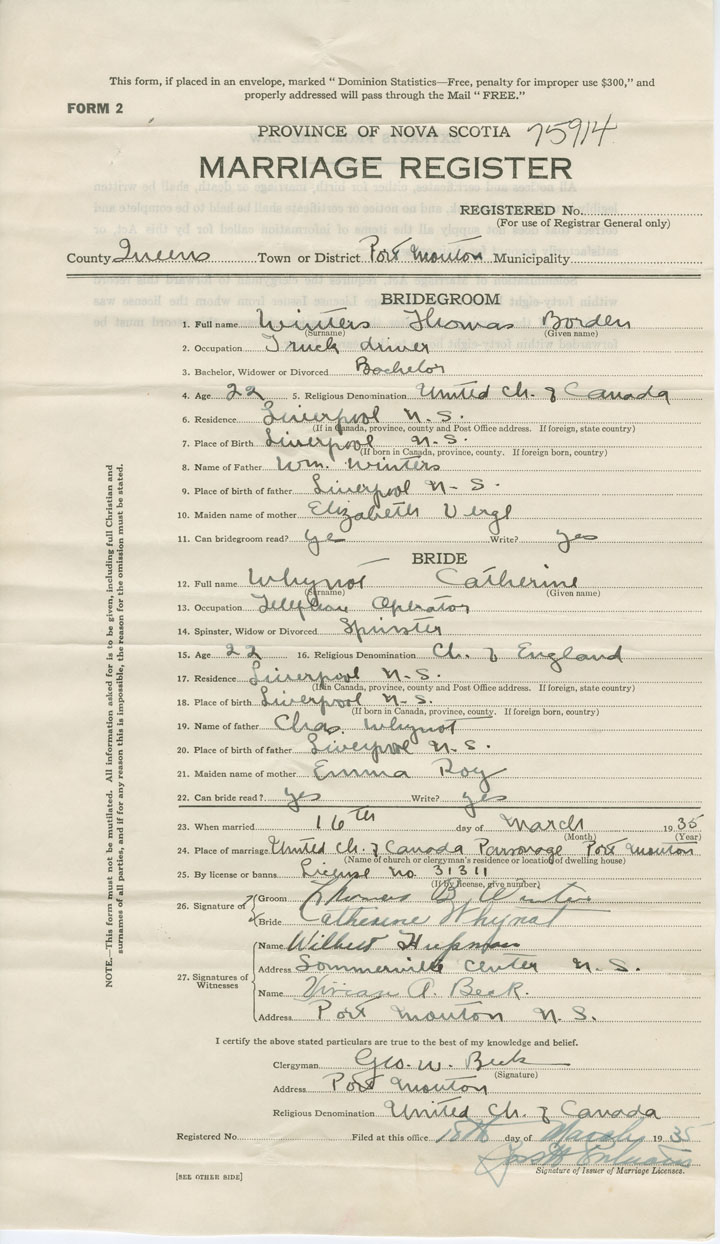 This form, if placed in an envelope, marked " Dominion Statistics—Free, penalty for improper use $300," and
properly addressed will pass through the Mail " FREE."
FORM 2
PROVINCE OF NOVA SCOTIA 75914
MARRIAGE REGISTER
REGISTERED No.
(For use of Registrar General only)
County Queens Town or District Port Mouton Municipality
BRIDEGROOM
1. Full name Winters Thomas Borden
(Surname) (Given name)
2. Occupation Truck driver
3. Bachelor, Widower or Divorced Bachelor
4. Age 22 5. Religious Denomination United Ch. of Canada
6. Residence Liverpool N.S.
(If in Canada, province, county and Post Office address. If foreign, state country)
7. Place of Birth Liverpool N.S.
(If born in Canada, province, county. If foreign born, country)
8. Name of Father Wm. Winters
9. Place of birth of father Liverpool N-S.
10. Maiden name of mother Elizabeth Vergl
11. Can bridegroom read? ye Write? yes
BRIDE
12. Full name Whynot Catherine
(Surname) (Given name)
13. Occupation Operator
14. Spinster, Widow or Divorced Spinster
15. Age 22 16. Religious Denomination Ch. of England
17. Residence Liverpool N-S.
(If in Canada, province, county and Post Office address. If foreign, state country)
18. Place of birth Liverpool N-S.
(If born in Canada, province, county. If foreign born, country)
19. Name of father Chas. Whynot
20. Place of birth of father Liverpool N-S.
21. Maiden name of mother Emma Roy
22. Can bride read? yes Write? yes
23. When married 16th day of March 1935
(Month) (Year)
24. Place of marriage United Ch. of Canada Parsonage Port Mouton
(Name of church or clergyman's residence or location of dwelling house)
25. By license or banns License no. 31311
(If by license, give number)
26. Signature of Groom Thomas B. Winters
Bride Catherine Whynot
27. Signatures of Witnesses
Name Wilbert Hupman
Address Sommerville Center N.S.
Name Vivian A. Beck.
Address Port Mouton N.S.
I certify the above stated particulars are true to the best of my knowledge and belief.
Clergyman Geo. W. Beck
(Signature)
Address Port Mouton
Religious Denomination United Ch. of Canada
Registered No. Filed at this office 18th day of March 1935
Signature of Issuer of Marriage Licenses.
[SEE OTHER SIDE]
NOTE.—This form must not be mutilated. All information asked for is to be given, including full Christian and
surnames of all parties, and if for any reason this is impossible, the reason for the omission must be stated.